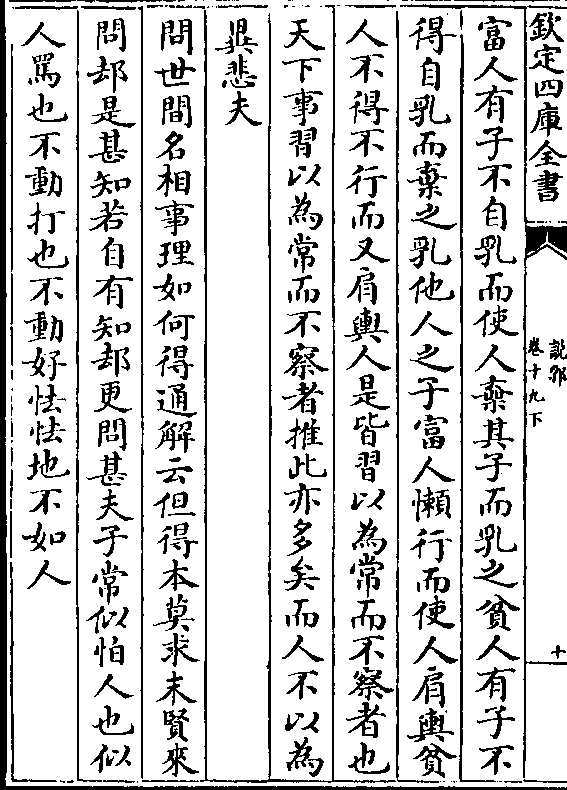 欽定四庫全書
說郛
卷十九下
十
富人有子不自乳而使人棄其子而乳之貧人有子不
得自乳而棄之乳他人之子富人懶行而使人肩輿貧
人不得不行而又肩輿人是皆習以為常而不察者也
天下事習以為常而不察者推此亦多矣而人不以為
異悲夫
問世間名相事理如何得通解云但得本莫求末賢來
問却是甚知若自有知却更問甚夫子常似怕人也似
人罵也不動打也不動好怯怯地不如人